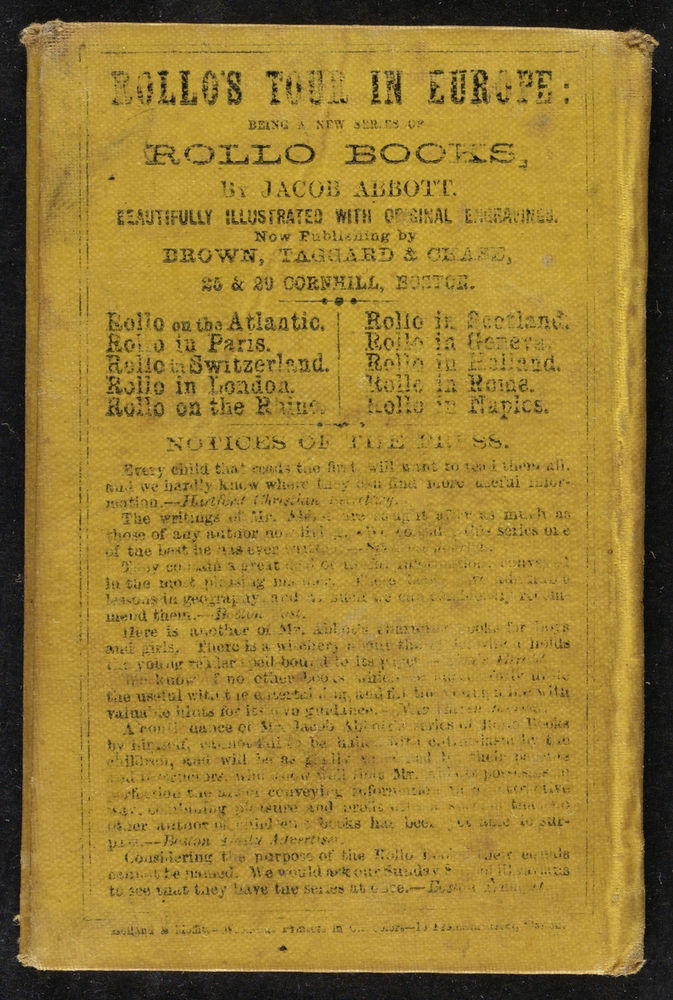 ROLLO'S TOUR IN EUROPE:
BEING A NEW SERIES OF
ROLLO BOOKS,
BY JACOB ABBOTT.
BEAUTIFULLY ILLUSTRATED WITH ORIGINAL ENGRAVINGS.
Now Publishing by
BROWN, TAGGARD & CHASE,
25 & 29 CORNHILL, BOSTON.
Rollo on the Atlantic.
Rollo in Paris.
Rollo in Switzerland.
Rollo in London.
Rollo on the Rhine.
Rollo in Scotland.
Rollo in Geneva.
Rollo in Holland.
Rollo in Rome.
Rollo in Naples.
NOTICES OF THE PRESS.
Every child that reads the first, will want to read them all,
and we hardly know where they can find more useful infor-
mation.—Hartford Christian Secretary.
The writings of Mr. Abbott are sought after as much as
those of any author now living. We consider this series one
of the best he has ever
They contain a great deal of useful information, conveyed
in the most pleasing manner. These
lessons in geography, and as such we can recom-
mend them.—Boston Post.
Here is another of Mr. Abbott's charming books for boys
and girls. There is a witchery about which holds
the young reader spell-bound to its
We know of no other books which
the useful with the entertaining, and with
valuable hints for its own guidance.
A continuance of Mr. Jacob Abbott's series of Rollo Books
by himself, cannot fail to be hailed with enthusiasm by the
children, and will be as gladly by their parents
and instructors, who know well that Mr. Abbott possesses in
perfection the art of conveying information in
way, combining pleasure and that no
other author of children's books has been able to sur-
pass.—Boston Daily Advertiser.
Considering the purpose of the Rollo Books their equals
cannot be named. We would ask our Sunday
to see that they have the series at once.—Boston